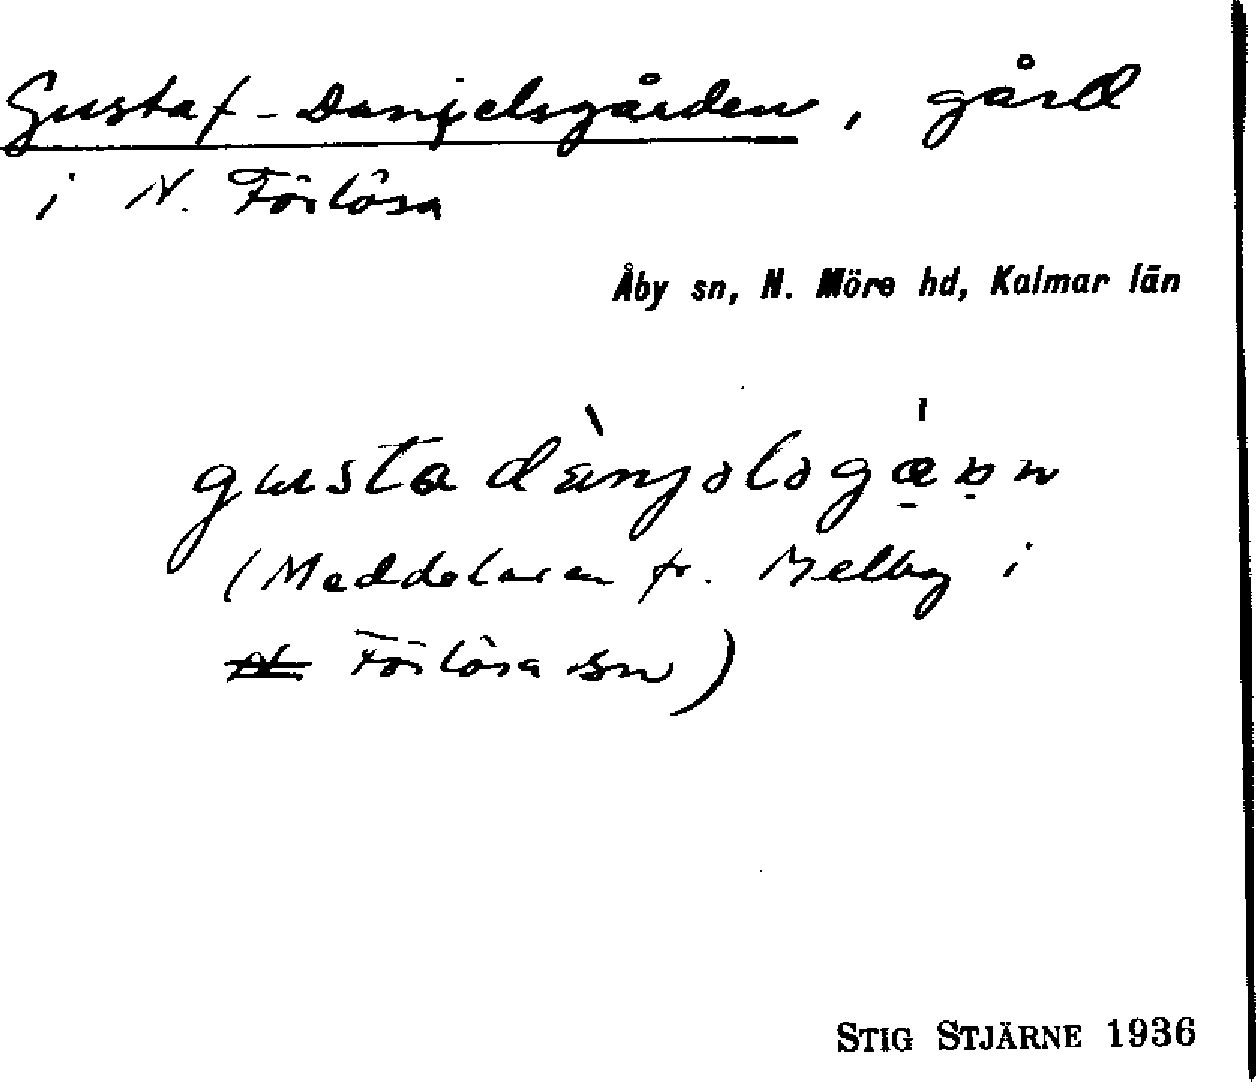 Gustaf-Danjelsgården, gård
i N. Förlösa
Åby sn, N. Möre hd, Kalmar län
(Meddelaren fr. Melby i
N. Förlösa sn)
STIG STJÄRNE 1936